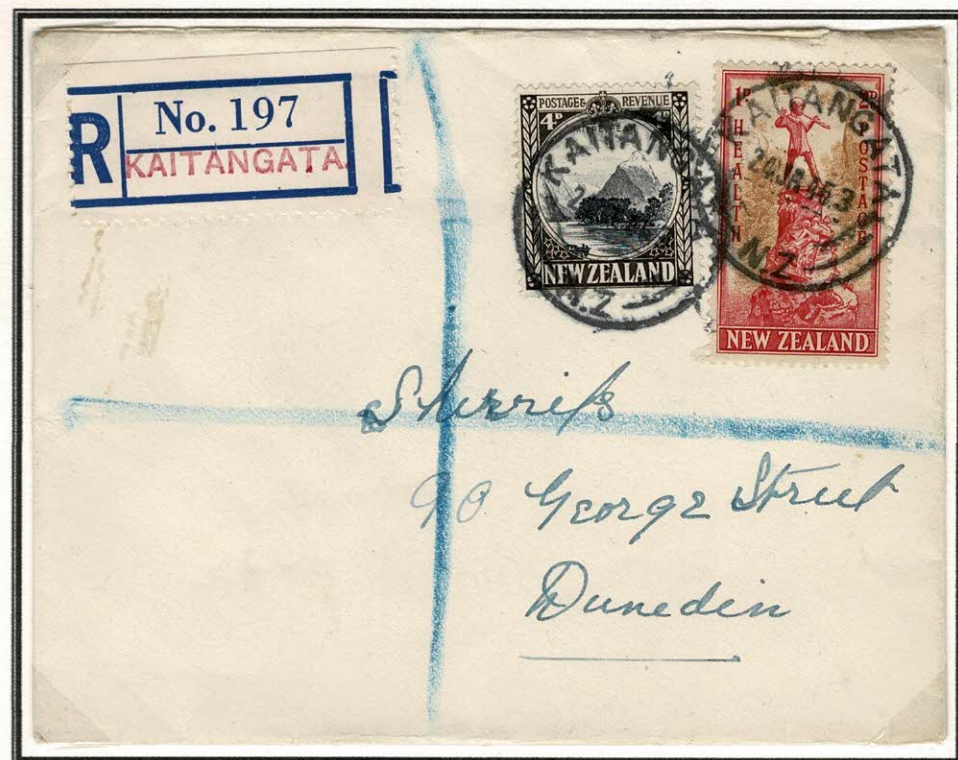 R
No. 197
KAITANGATA
POSTAGE & REVENUE
4D
NEW ZEALAND
KAITANGATA
N.Z.
1D
2D
HEALTH
POSTAGE
NEW ZEALAND
KAITANGATA
N.Z.
Sherriffs
90 George Street
Dunedin